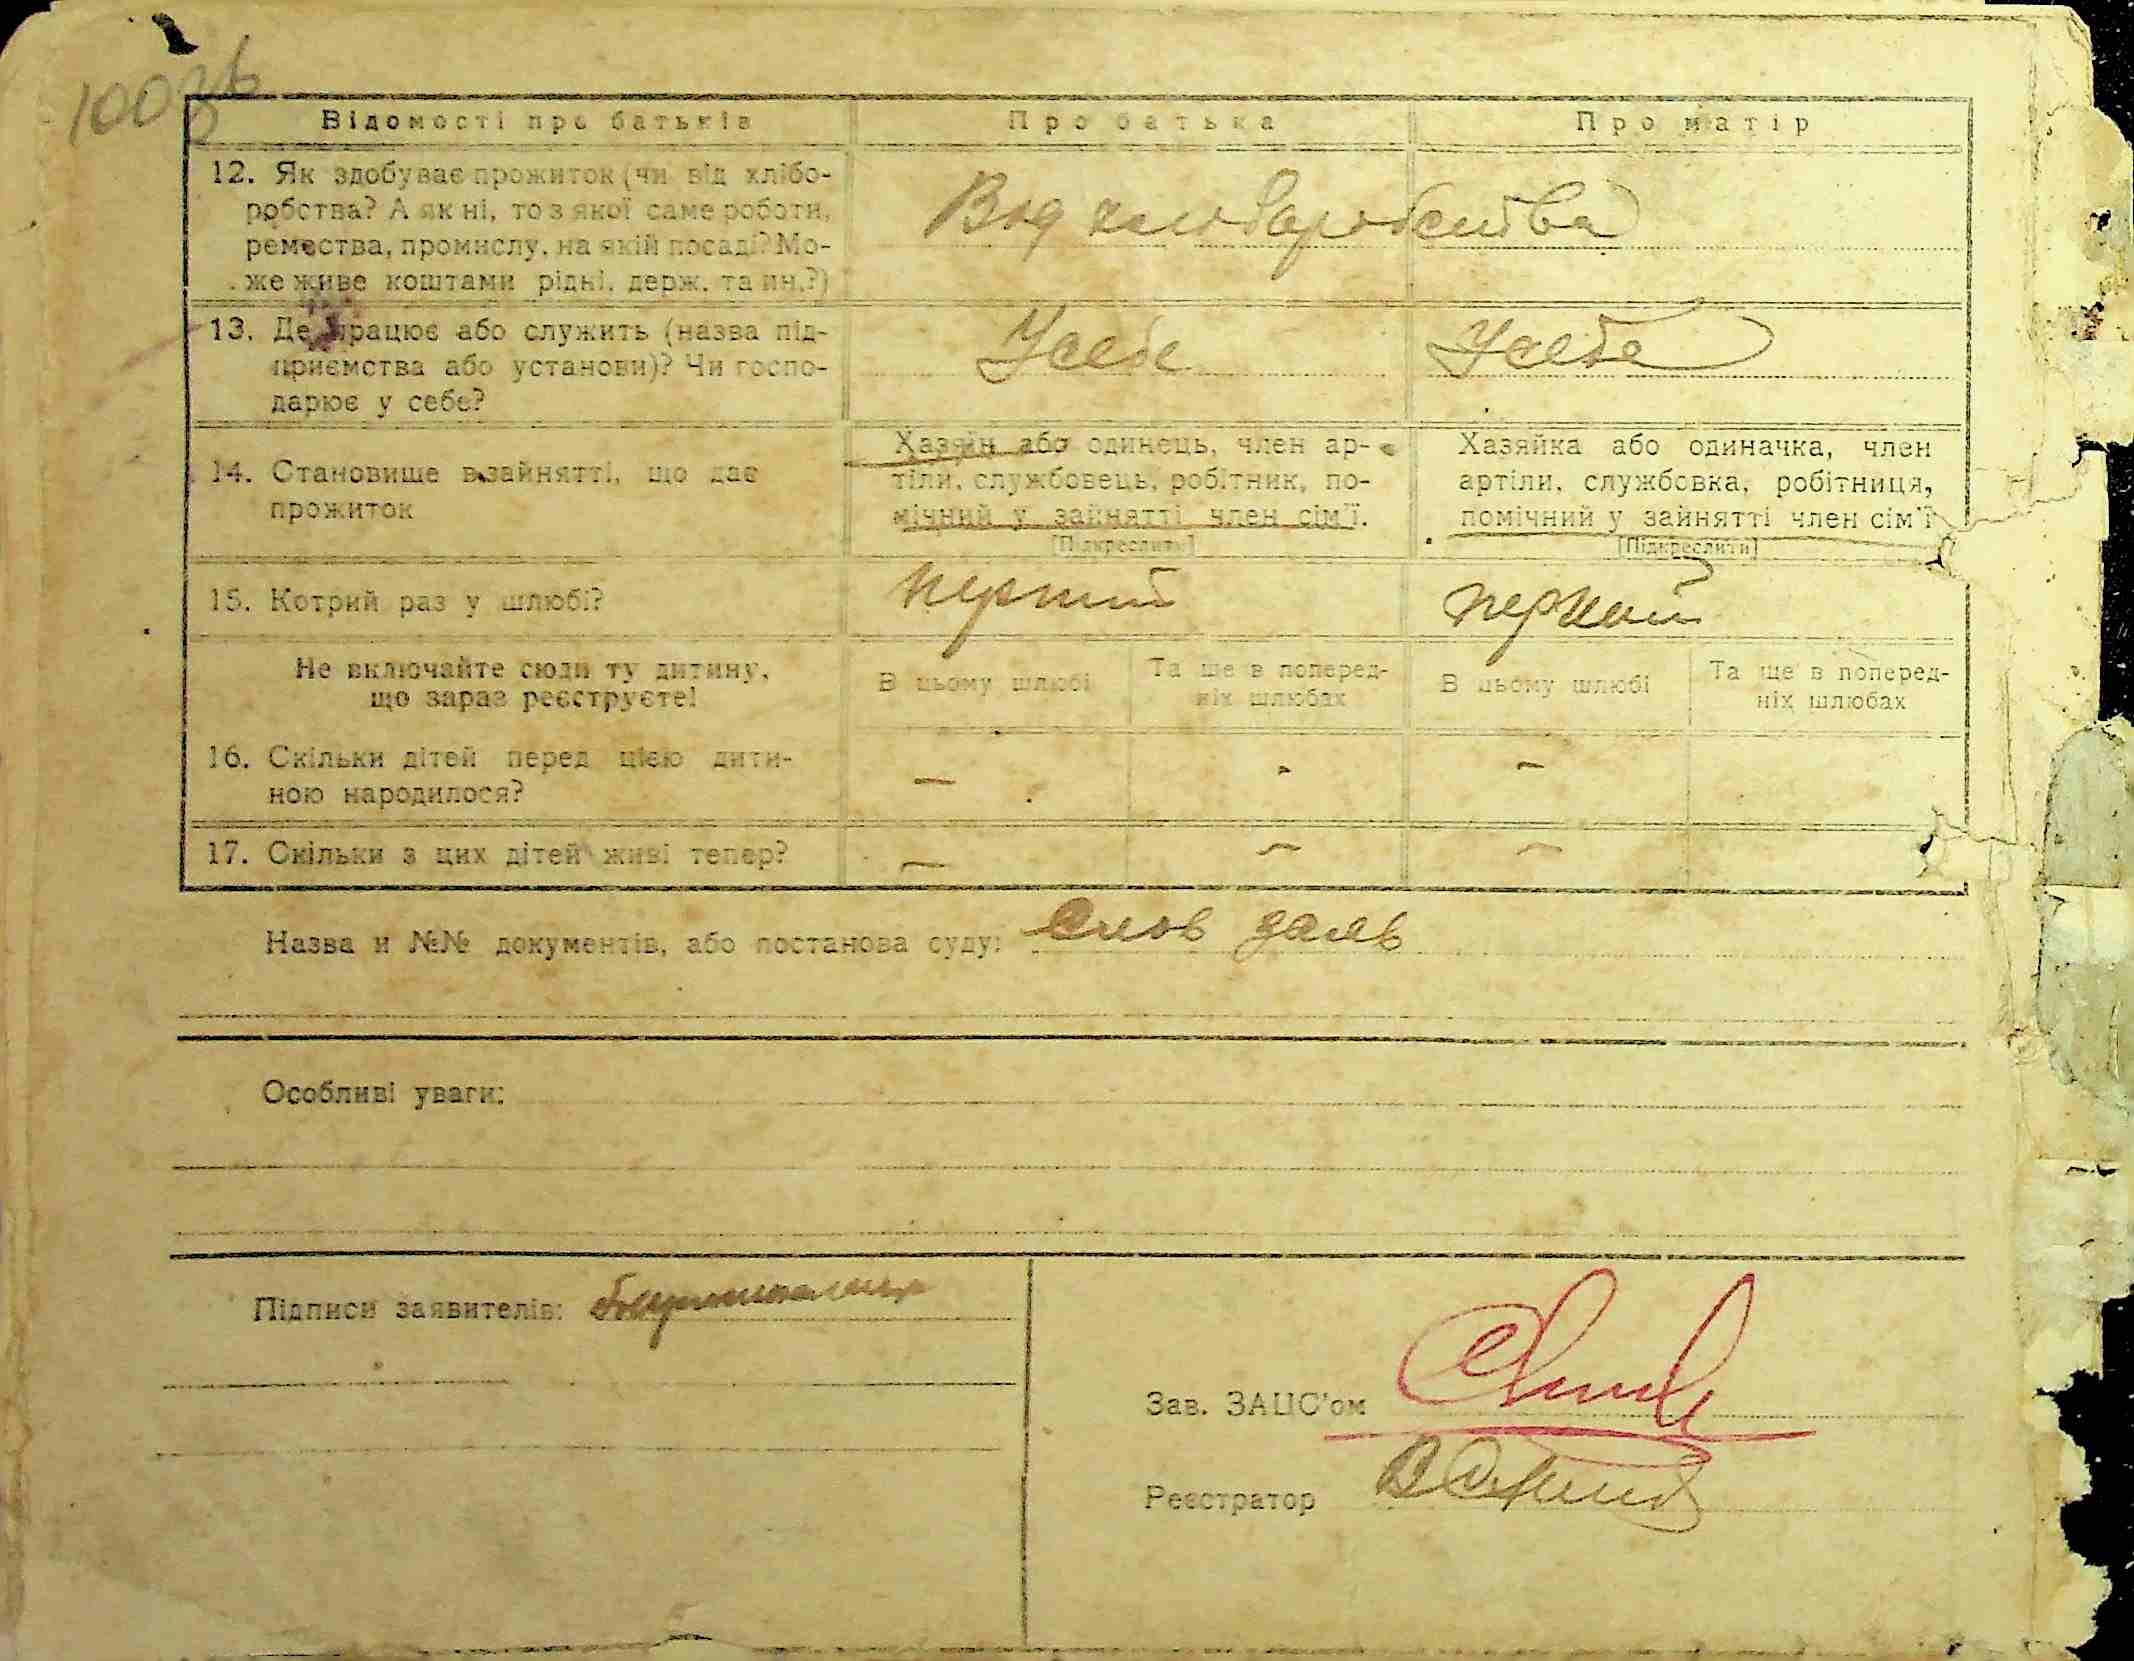 100зв
Відомості про батьків Про батька Про матір
12. Як здобуває прожиток (чи від хлібо-
робства? А як ні, то з якої саме роботи,
ремества, промислу, на якій посаді? Мо-
же живе коштами рідні, держ. та ин.?)
Вид хлібаробства
13. Де працює або служить (назва під-
приємства або установи)? Чи госпо-
дарює у себе?
Усебе Усебе
14. Становище в зайнятті, що дає
прожиток
Хазяїн або одинець, член ар-
тіли, службовець, робітник, по-
мічний у зайнятті член сім'ї.
[Підкреслити]
Хазяйка або одиначка, член
артіли, службовка, робітниця,
помічний у зайнятті член сім'ї
[Підкреслити]
15. Котрий раз у шлюбі? перший перший
Не включайте сюди ту дитину,
що зараз реєструєте!
В цьому шлюбі
Та ще в поперед-
ніх шлюбах
В цьому шлюбі
Та ще в поперед-
ніх шлюбах
16. Скільки дітей перед цією дити-
ною народилося?
— - —
17. Скільки з цих дітей живі тепер? — — —
Назва й №№ документів, або постанова суду:
Особливі уваги:
Підписи заявителів:
Зав. ЗАЦС'ом
Реєстратор